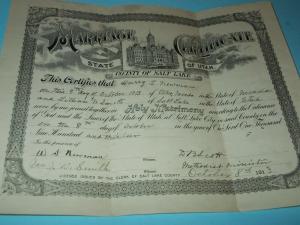 MARRIAGE CERTIFICATE
STATE OF UTAH
COUNTY OF SALT LAKE
This Certifies that Harry E. Newman
on the 8th day of October 1913 of in the State of Nevada
and Smith of Salt Lake in the State of Utah
were by me united in Holy Matrimony according to the Ordinance
of God and the Laws of the State of Utah at Salt Lake City in said County on the
on the 8th day of October in the year of Our Lord One Thousand
Nine Hundred and thirteen
In the presence of
W. S. Newman
Smith
Methodist Minister
October 8th 1913
LICENSE ISSUED BY THE CLERK OF SALT LAKE COUNTY